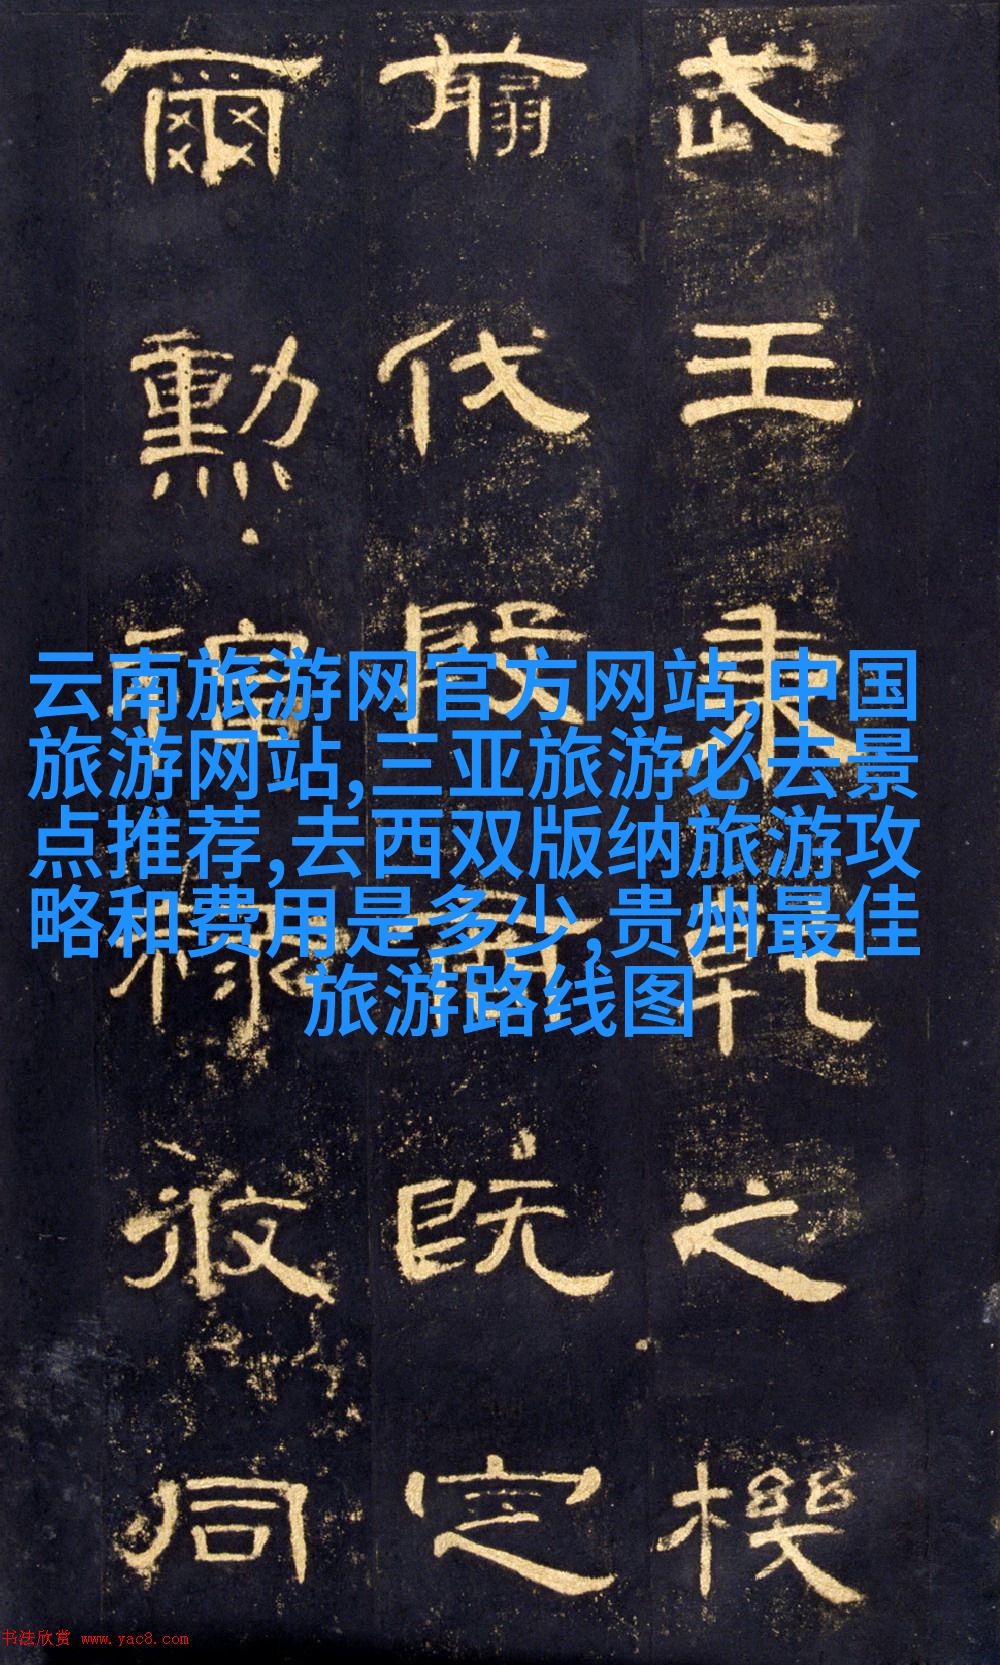 武王秉乾之機
翦伐殷商既定
爾勲福祿攸同
云南旅游网官方网站,中国
旅游网站,三亚旅游必去景
点推荐,去西双版纳旅游攻
略和费用是多少,贵州最佳
旅游路线图
书法欣赏 www.yac8.com